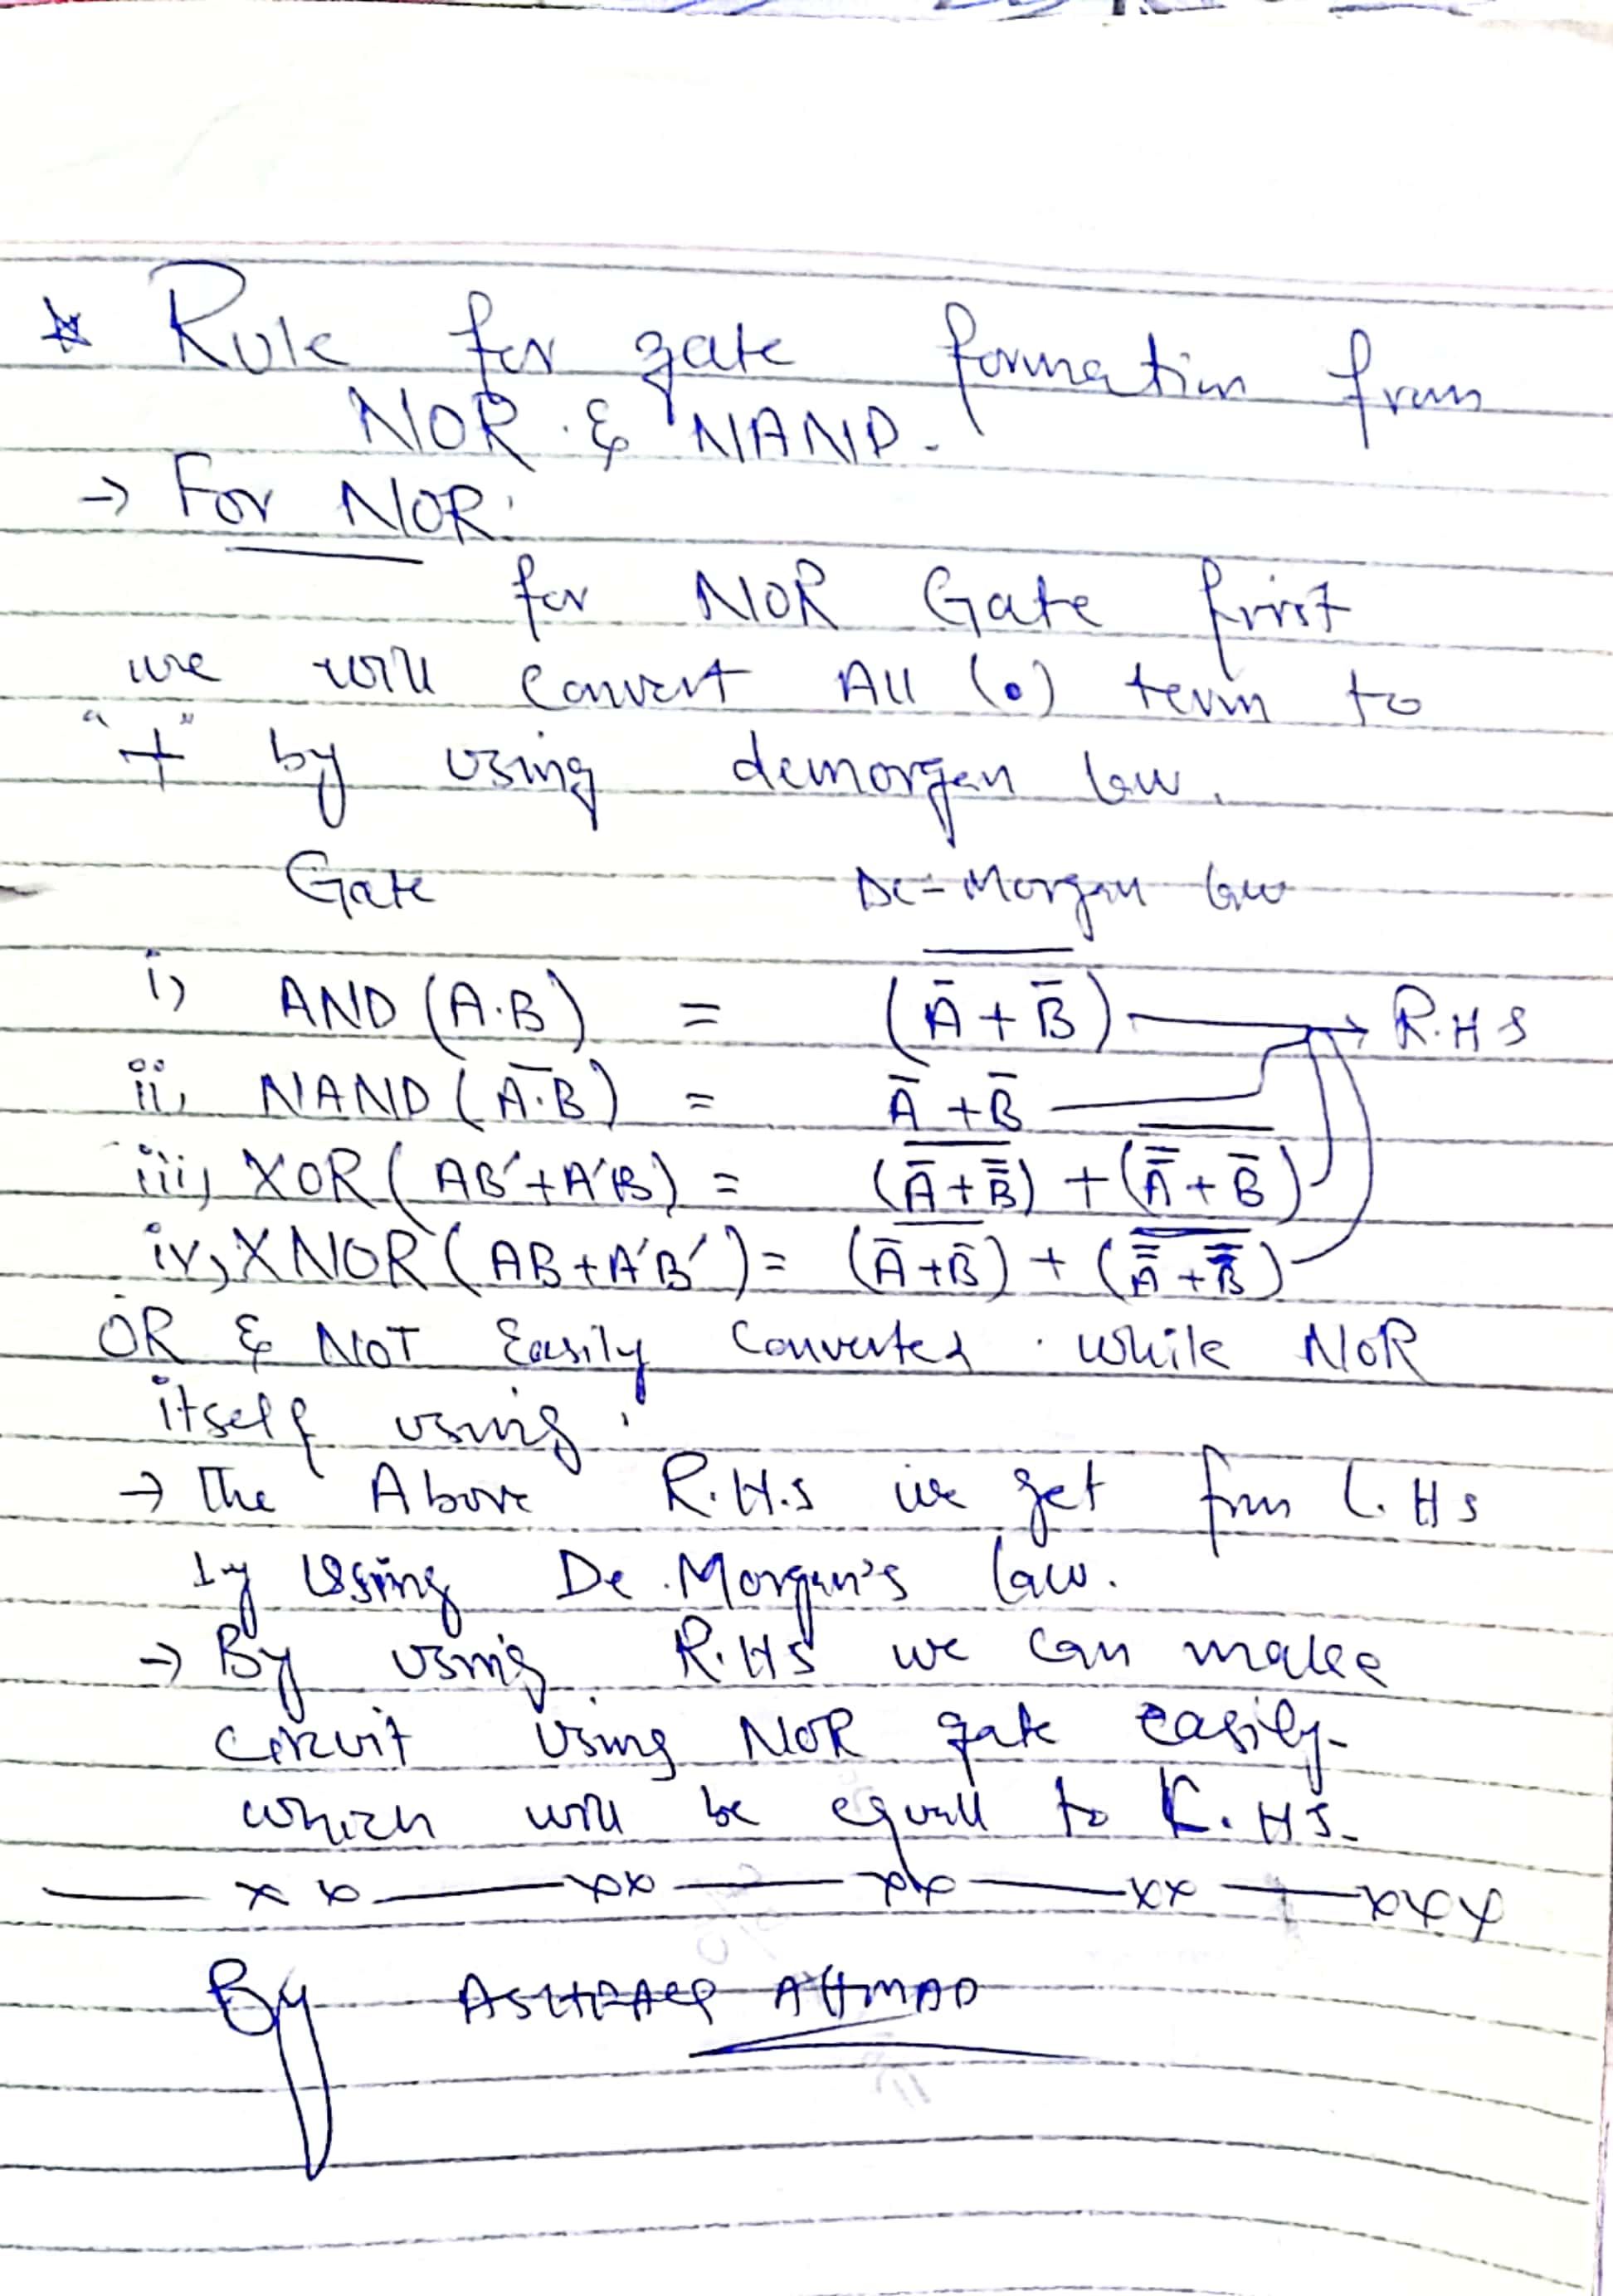 * Rule for gate formation from
NOR & NAND.
→ For NOR:
for NOR Gate first
we will convert All (.) term to
"+" by using demorgan law.
Gate De-Morgan law
i) AND (A·B) = \overline{(Ā + B̄)} → R.H.S
ii) NAND (\overline{A·B}) = Ā + B̄
iii) XOR (AB' + A'B) = \overline{(Ā + B̿)} + \overline{(A̿ + B̄)}
iv) XNOR (AB + A'B') = \overline{(Ā + B̄)} + \overline{(A̿ + B̿)}
OR & NOT Easily Converted. while NOR
itself using.
→ The Above R.H.S we get from L.HS
by Using De.Morgan's law.
→ By using R.HS we can make
circuit using NOR gate easily-
which will be equall to L.HS.
xx xx xx xx xxx
By ASHFAQ AHMAD